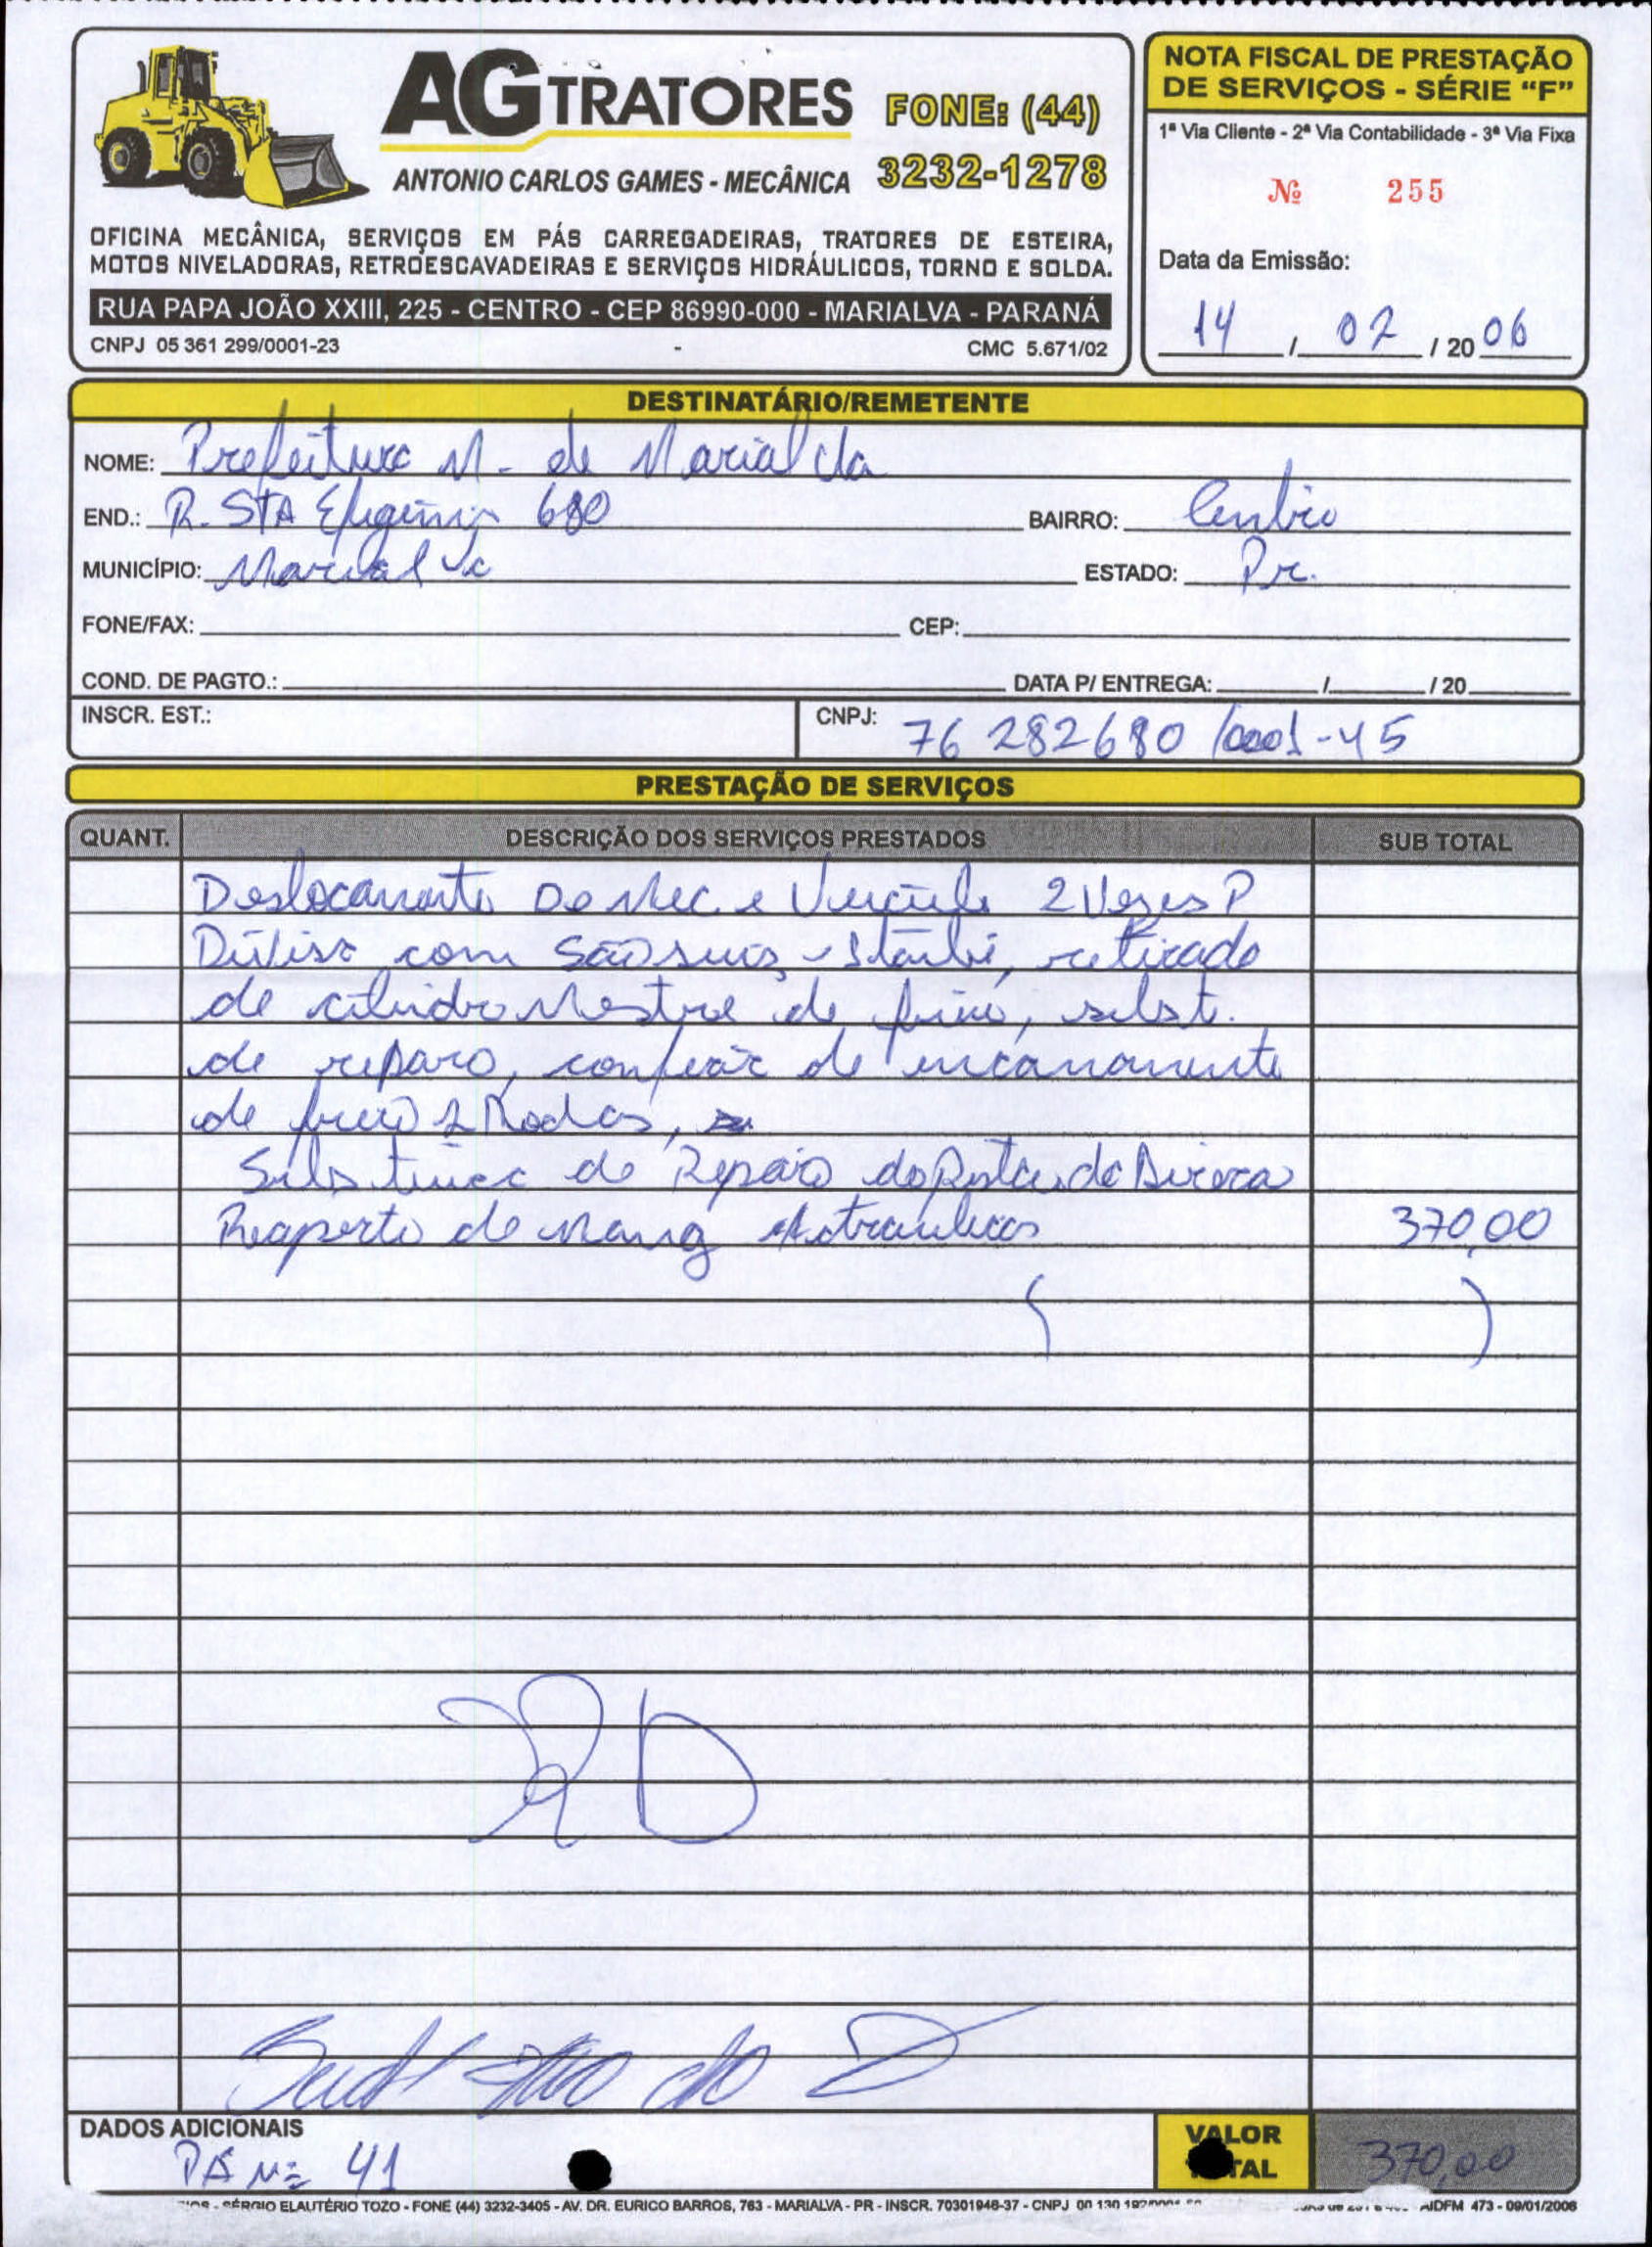 AG TRATORES
FONE: (44)
3232-1278
ANTONIO CARLOS GAMES - MECÂNICA
OFICINA MECÂNICA, SERVIÇOS EM PÁS CARREGADEIRAS, TRATORES DE ESTEIRA,
MOTOS NIVELADORAS, RETROESCAVADEIRAS E SERVIÇOS HIDRÁULICOS, TORNO E SOLDA.
RUA PAPA JOÃO XXIII, 225 - CENTRO - CEP 86990-000 - MARIALVA - PARANÁ
CNPJ 05 361 299/0001-23
CMC 5.671/02
NOTA FISCAL DE PRESTAÇÃO
DE SERVIÇOS - SÉRIE "F"
1ª Via Cliente - 2ª Via Contabilidade - 3ª Via Fixa
Nº 255
Data da Emissão:
14 / 02 / 20 06
DESTINATÁRIO/REMETENTE
NOME: Prefeitura M. de Marialva
END.: R. STA Efigênia 680 BAIRRO: Centro
MUNICÍPIO: Marialva ESTADO: Pr.
FONE/FAX: CEP:
COND. DE PAGTO.: DATA P/ ENTREGA: / / 20
INSCR. EST.: CNPJ: 76 282680/0001-45
PRESTAÇÃO DE SERVIÇOS
QUANT. DESCRIÇÃO DOS SERVIÇOS PRESTADOS SUB TOTAL
Deslocamento De Mec e Veiculo 2 Vezes P
Divisa com São Luis, retirado
de cilindro Mestre de freio, subst.
de reparo, de encanamento
de freio 2 Rodas,
de Reparo do
Reaperto de Mang 370,00
DADOS ADICIONAIS
PÁ Nº 41
VALOR
370,00
SÉRGIO ELAUTÉRIO TOZO - FONE (44) 3232-3405 - AV. DR. EURICO BARROS, 763 - MARIALVA - PR - INSCR. 70301948-37 - CNPJ AIDFM 473 - 09/01/2006